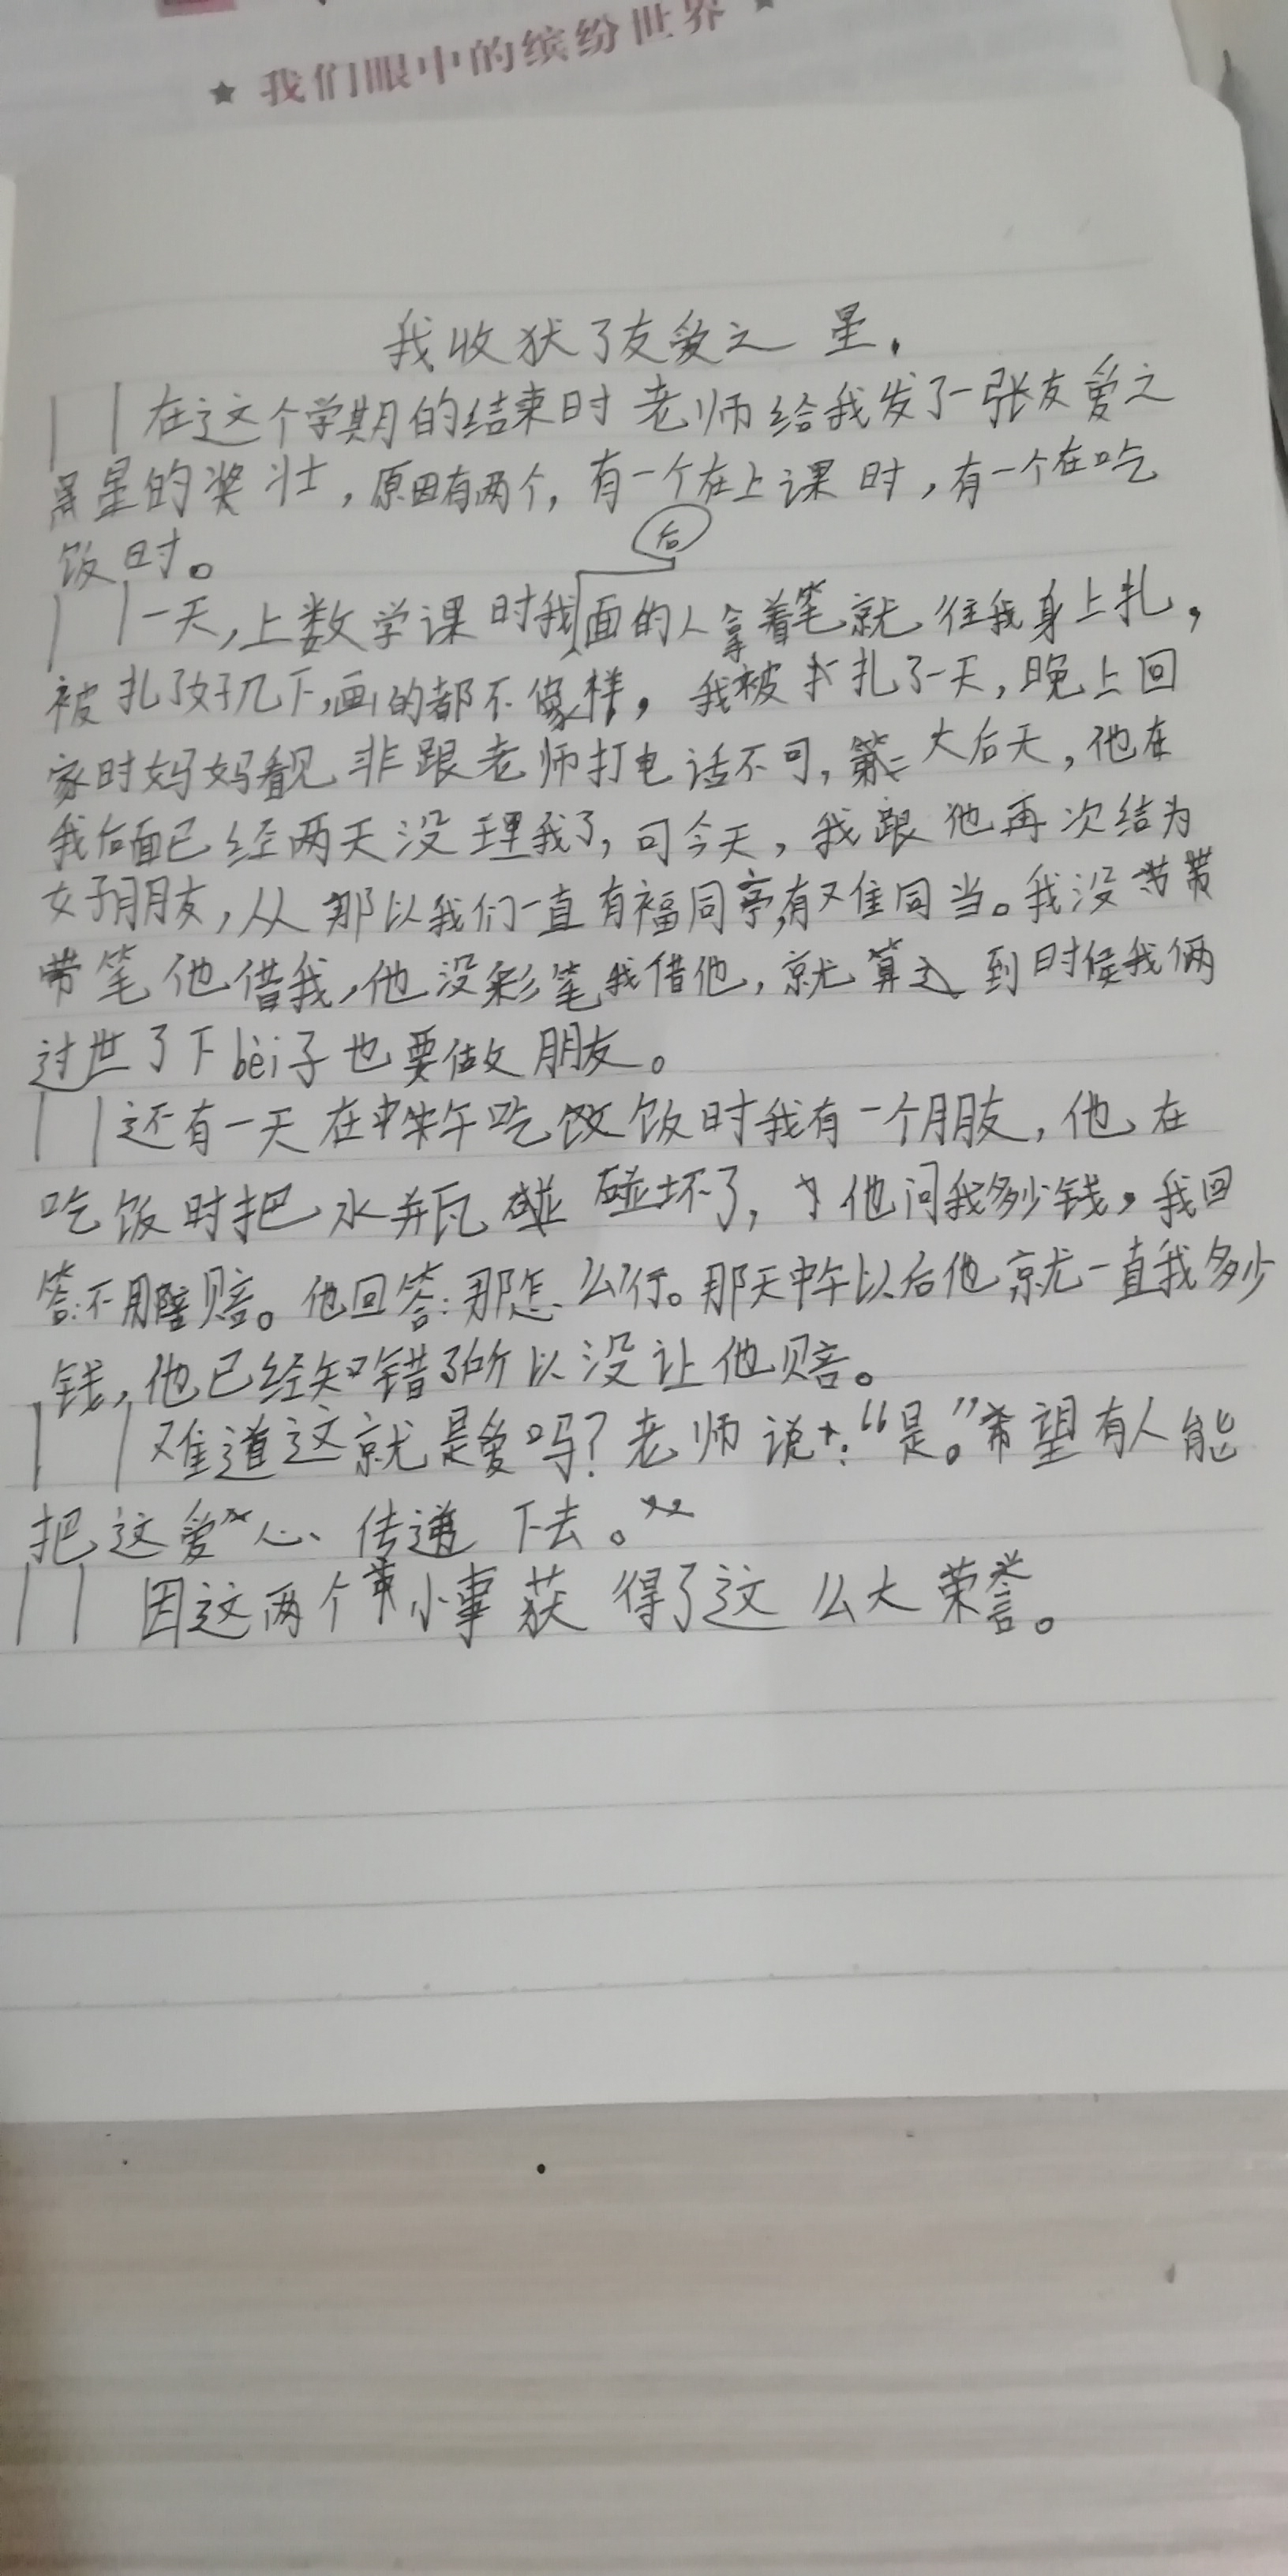 ★ 我们眼中的缤纷世界 ★
我收犾了友爱之 星.
在这个学期的结束时 老师给我发了一张友爱之
星的奖壮，原因有两个，有一个在上课时，有一个在吃
饭时。
一天，上数学课时我后面的人拿着笔就往我身上扎，
被扎了好几下，画的都不像样，我被扎了一天，晚上回
家时妈妈看见非跟老师打电话不可，大后天，他在
我后面已经两天没理我了，可今天，我跟他再次结为
好朋友，从那以我们一直有福同享，有难同当。我没带
带笔他借我，他没彩笔我借他，就算到时候我俩
过世了下bèi子也要做朋友。
还有一天在中午吃饭时我有一个朋友，他在
吃饭时把水瓶碰坏了，他问我多少钱，我回
答：不用赔。他回答：那怎么行。那天中午以后他就一直我多少
钱，他已经知错了所以没让他赔。
难道这就是爱吗？老师说：“是。”希望有人能
把这爱心传递下去。
因这两个小事获得了这么大荣誉。